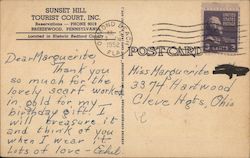 SUNSET HILL
TOURIST COURT, INC.
Reservations — PHONE 9019
BREEZEWOOD, PENNSYLVANIA
Located in Historic Bedford County
1952
POST CARD
Dear Marguerite,
Thank you
so much for the
lovely scarf worked
in gold for my
birthday gift. I
will treasure it
and think of you
when I wear it
Lots of love - Ethel
Miss Marguerite
3374 Hartwood
Cleve Hgts, Ohio